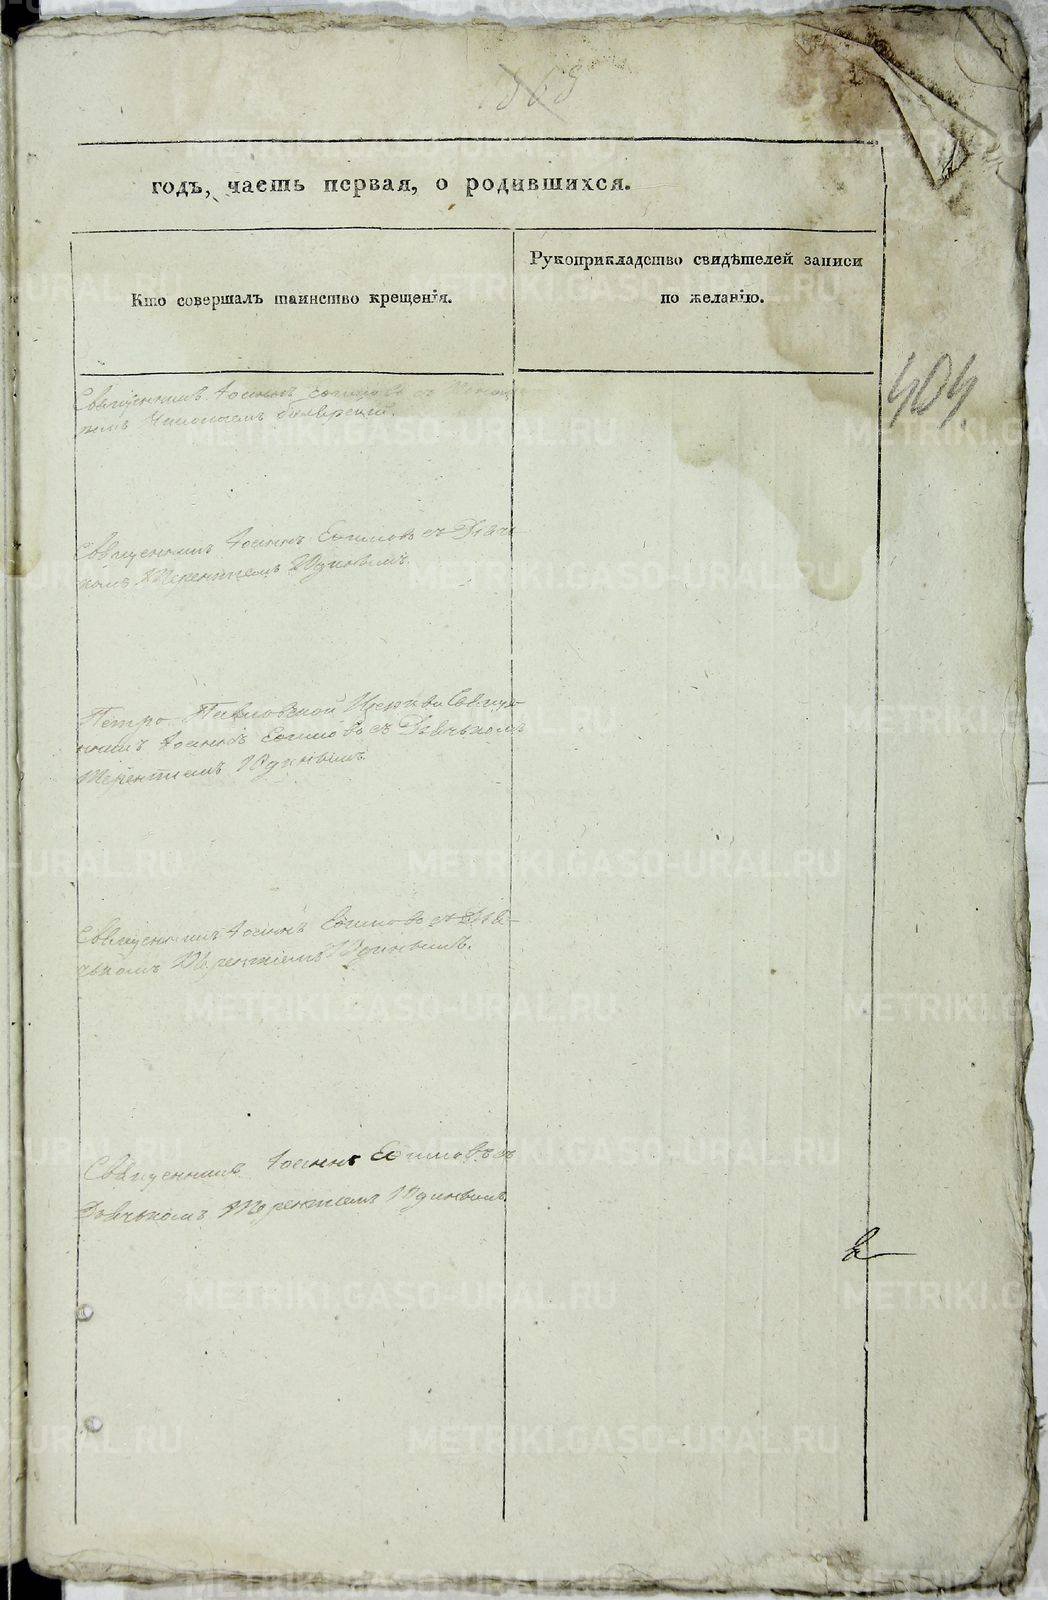 годъ, часть первая, о родившихся.
Кто совершалъ таинство крещенія.
Рукоприкладство свидѣтелей записи
по желанію.
404
Священникъ Іоаннъ
Священникъ Іоаннъ Ефимовъ съ Дьяч-
комъ Терентіемъ Юдинымъ.
Петро Павловской Церкви Свяще-
нникъ Іоаннъ Ефимовъ съ Дьячькомъ
Терентіемъ Юдинымъ
Священникъ Іоаннъ Ефимовъ съ Дья-
чькомъ Терентіемъ Юдинымъ.
Священникъ Іоаннъ Ефимовъ съ
Дьячькомъ Терентіемъ Юдинымъ.
METRIKI.GASO-URAL.RU